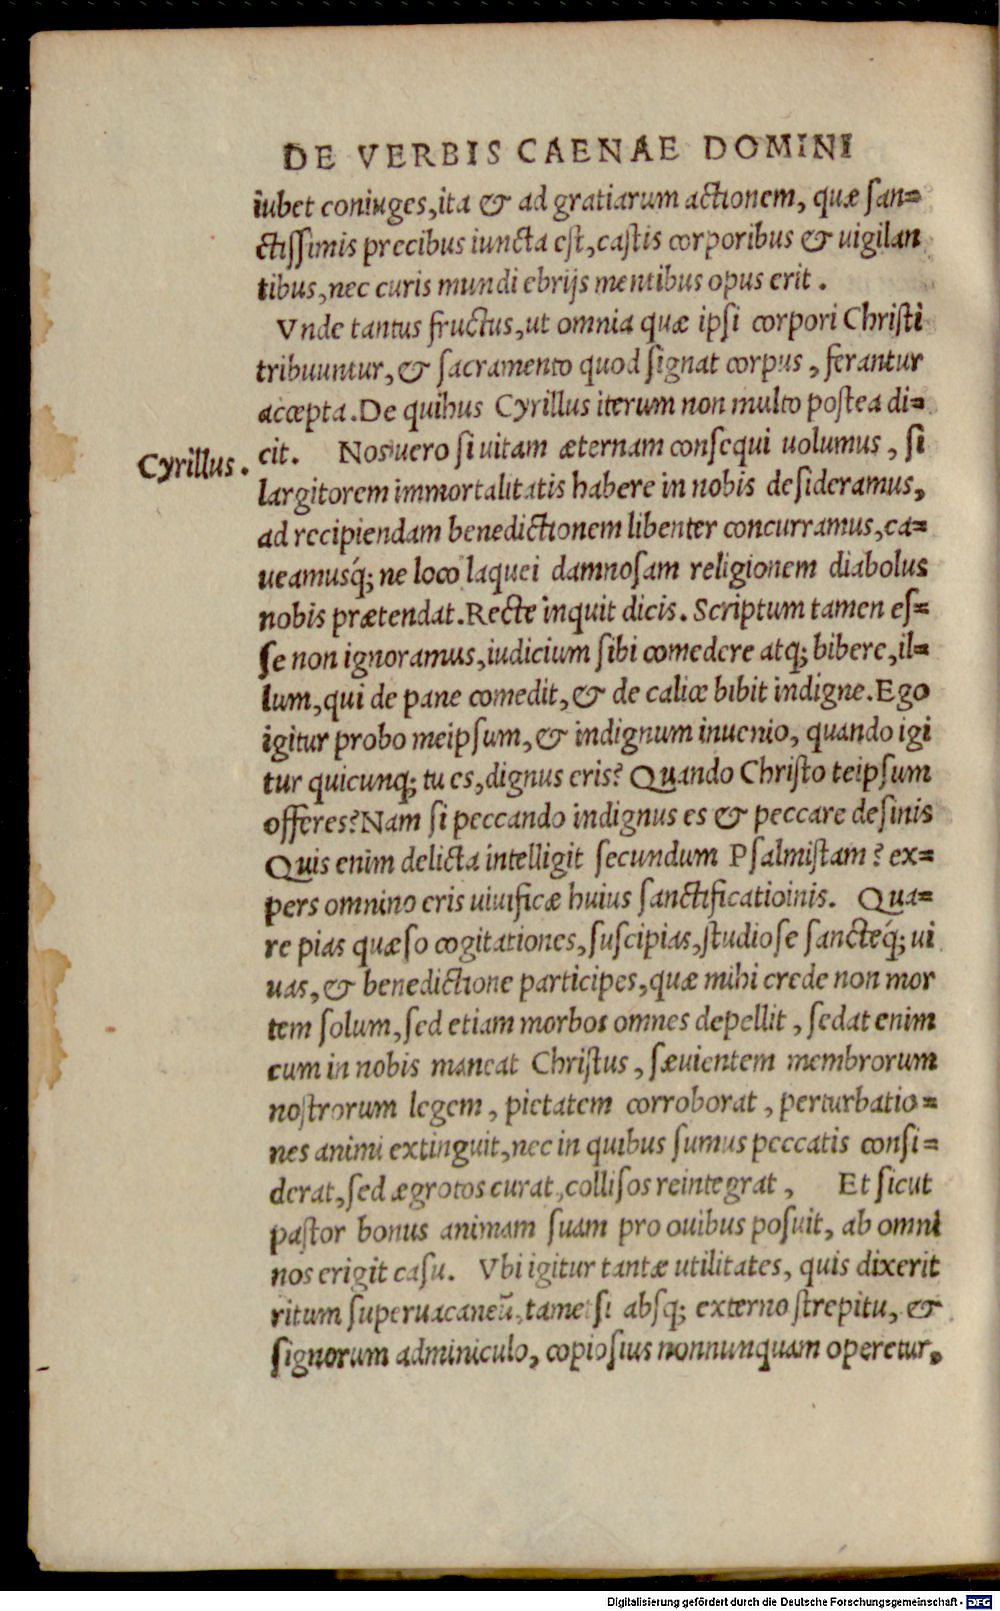 DE VERBIS CAENAE DOMINI
iubet coniuges, ita & ad gratiarum actionem, quæ san=
ctissimis precibus iuncta est, castis corporibus & uigilan
tibus, nec curis mundi ebrijs mentibus opus erit.
Vnde tantus fructus, ut omnia quæ ipsi corpori Christi
tribuuntur, & sacramento quod signat corpus, ferantur
accepta. De quibus Cyrillus iterum non multo postea di=
Cyrillus.
cit. Nos uero si uitam æternam consequi uolumus, si
largitorem immortalitatis habere in nobis desideramus,
ad recipiendam benedictionem libenter concurramus, ca=
ueamusq́; ne loco laquei damnosam religionem diabolus
nobis prætendat. Recte inquit dicis. Scriptum tamen es=
se non ignoramus, iudicium sibi comedere atq; bibere, il=
lum, qui de pane comedit, & de calice bibit indigne. Ego
igitur probo meipsum, & indignum inuenio, quando igi
tur quicunq; tu es, dignus eris? Quando Christo teipsum
offeres? Nam si peccando indignus es & peccare desinis
Quis enim delicta intelligit secundum Psalmistam? ex=
pers omnino eris uiuificæ huius sanctificatioinis. Qua=
re pias quæso cogitationes, suscipias, studiose sancteq́; ui
uas, & benedictione participes, quæ mihi crede non mor
tem solum, sed etiam morbos omnes depellit, sedat enim
cum in nobis maneat Christus, sæuientem membrorum
nostrorum legem, pietatem corroborat, perturbatio=
nes animi extinguit, nec in quibus sumus peccatis consi=
derat, sed ægrotos curat, collisos reintegrat, Et sicut
pastor bonus animam suam pro ouibus posuit, ab omni
nos erigit casu. Vbi igitur tantæ utilitates, quis dixerit
ritum superuacaneũ, tametsi absq; externo strepitu, &
signorum adminiculo, copiosius nonnunquam operetur,
Digitalisierung gefördert durch die Deutsche Forschungsgemeinschaft - DFG